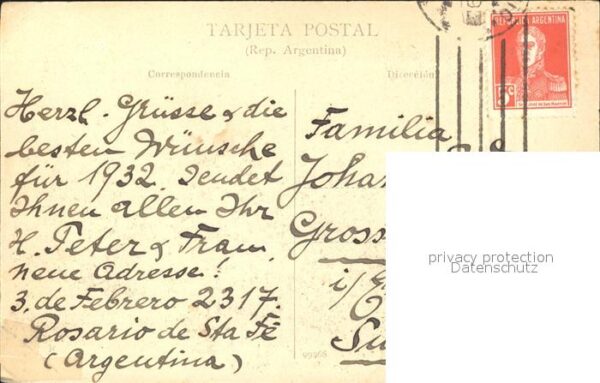 TARJETA POSTAL
(Rep. Argentina)
Correspondencia
Dirección
REPUBLICA ARGENTINA
5c
Herzl. Grüsse & die
besten Wünsche
für 1932 sendet
Ihnen allen Ihr
H. Peter & Frau,
neue Adresse!
3. de Febrero 2317.
Rosario de Sta Fé
(Argentina)
Familia
Joha
Gross
i/E
Su
privacy protection
Datenschutz